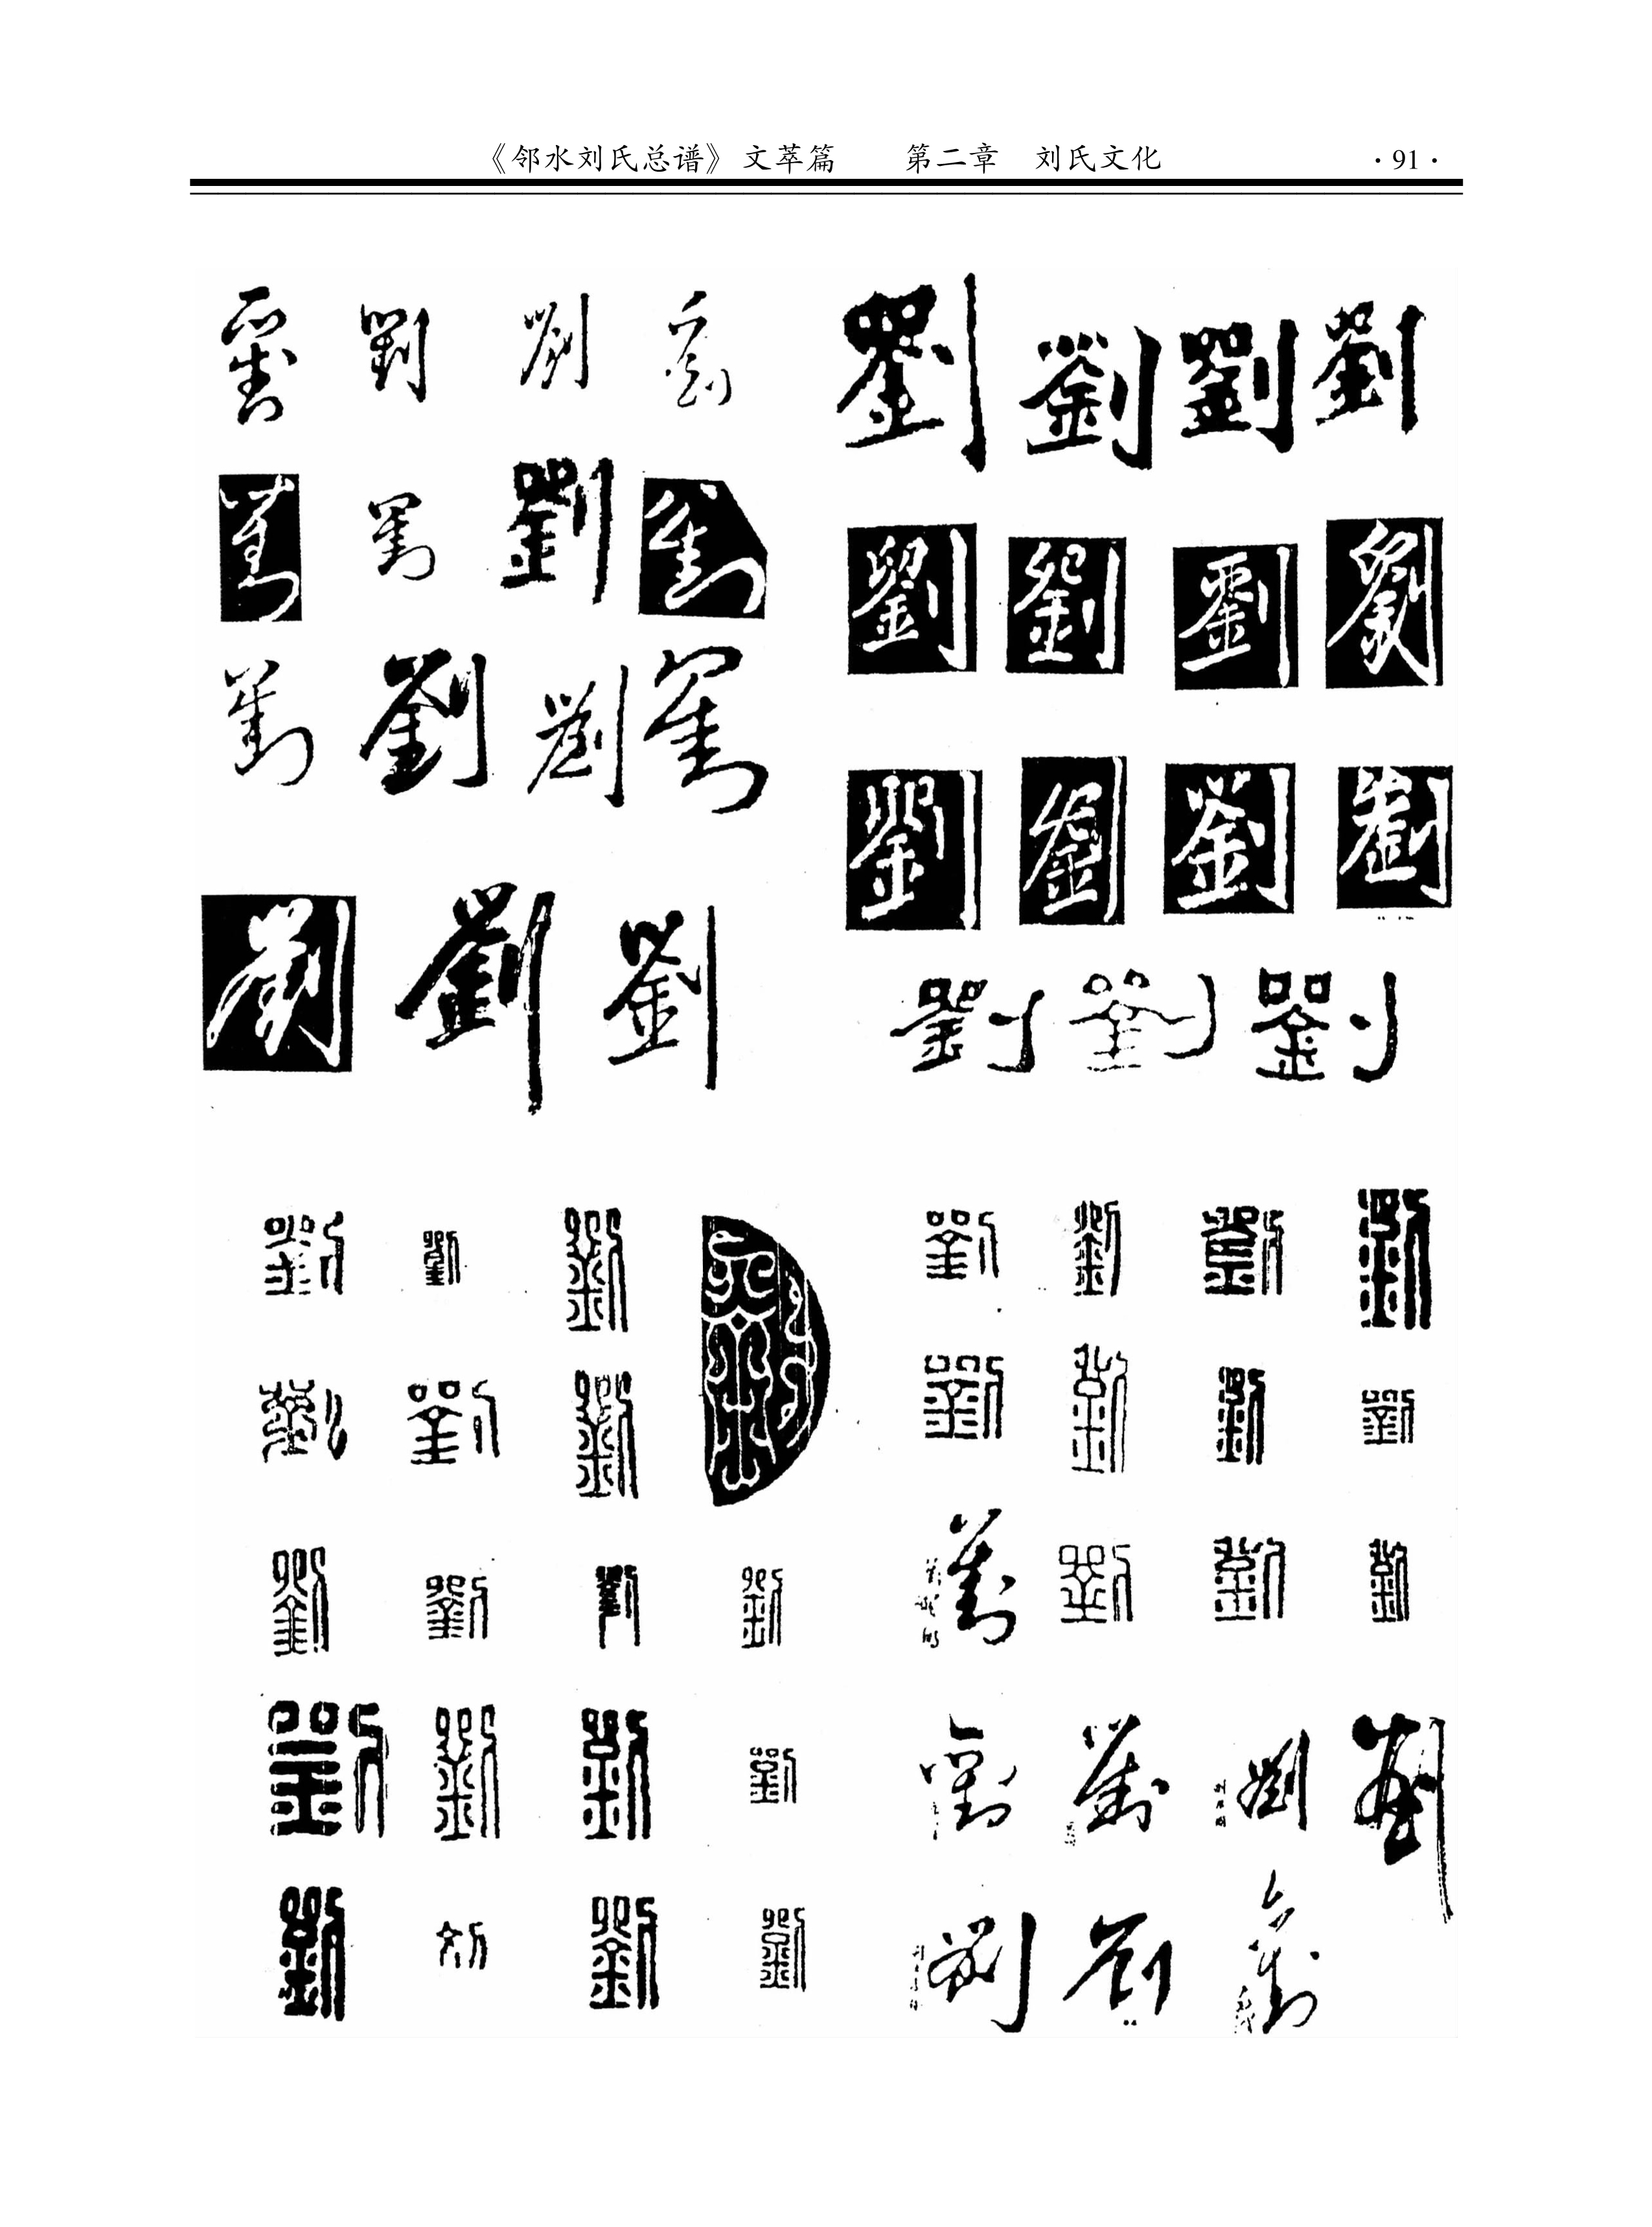 《邻水刘氏总谱》文萃篇 第二章 刘氏文化 ·91·
劉 劉 劉 劉 劉 劉 劉 劉
劉 劉 劉 劉 劉 劉 劉 劉
劉 劉 劉 劉 劉 劉 劉 劉
劉 劉 劉 劉 劉 劉
劉 劉 劉 劉 劉 劉 劉
劉 劉 劉 劉 劉 劉 劉
劉 劉 劉 劉 劉 劉 劉 劉
劉 劉 劉 劉 劉 劉 劉 劉
劉 劉 劉 劉 劉 劉